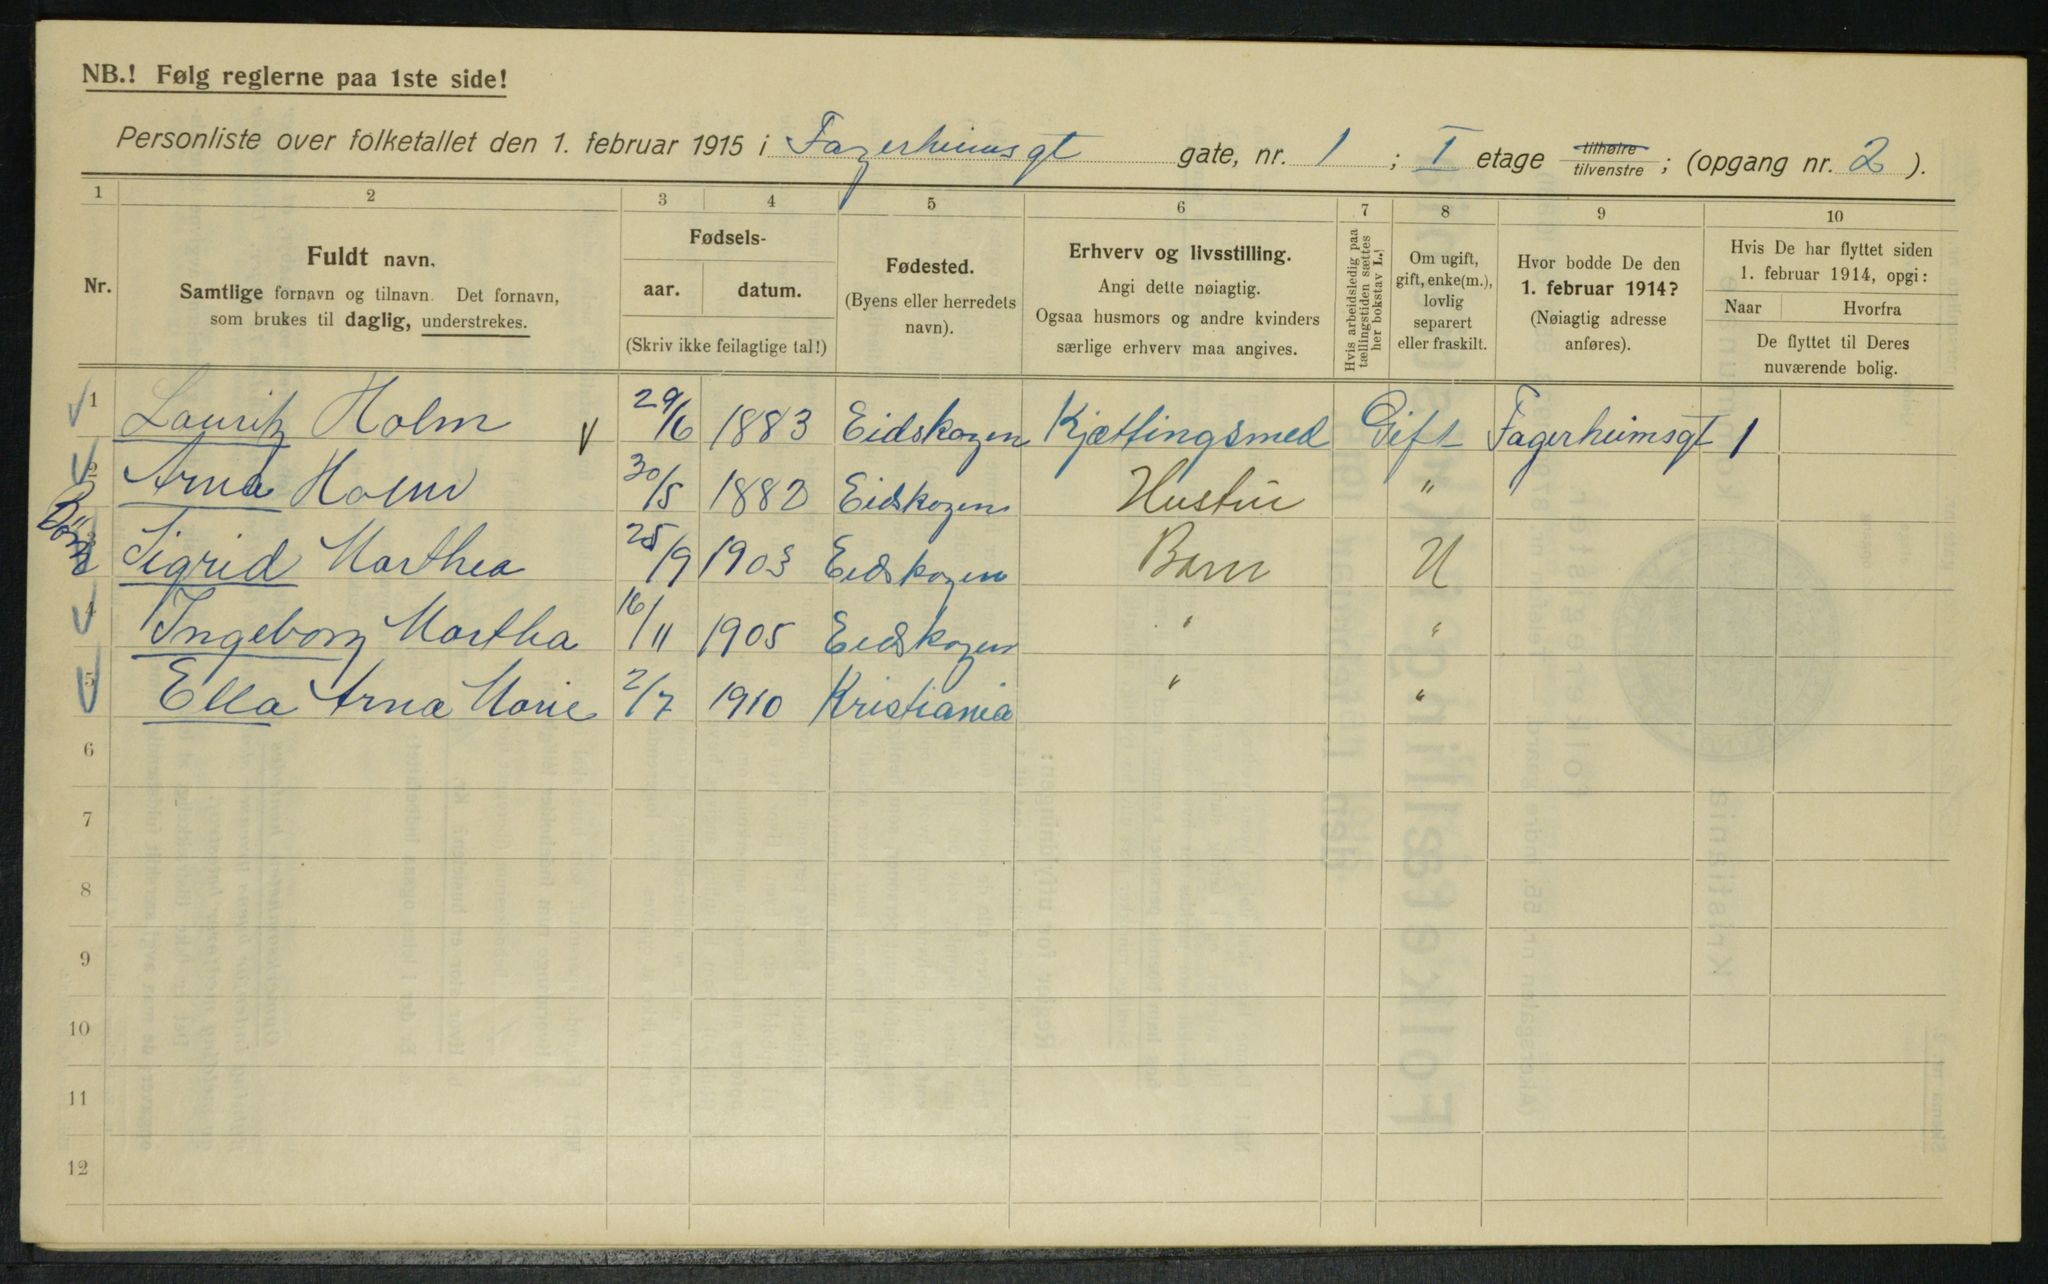 NB.! Følg reglerne paa 1ste side!
Personliste over folketallet den 1. februar 1915 i Fagerheimsgt gate, nr. 1 ; I etage tilhøire tilvenstre ; (opgang nr. 2 ).
1 2 3 4 5 6 7 8 9 10
Nr.
Fuldt navn.
Samtlige fornavn og tilnavn. Det fornavn,
som brukes til daglig, understrekes.
Fødsels-
aar. datum.
(Skriv ikke feilagtige tal!)
Fødested.
(Byens eller herredets
navn).
Erhverv og livsstilling.
Angi dette nøiagtig.
Ogsaa husmors og andre kvinders
særlige erhverv maa angives.
Hvis arbeidsledig paa
tællingstiden sættes
her bokstav L.!
Om ugift,
gift, enke(m.),
lovlig
separert
eller fraskilt.
Hvor bodde De den
1. februar 1914?
(Nøiagtig adresse
anføres).
Hvis De har flyttet siden
1. februar 1914, opgi:
Naar Hvorfra
De flyttet til Deres
nuværende bolig.
1 Lauritz Holm 29/6 1883 Eidskogen Kjættingsmed Gift Fagerheimsgt 1
2 Arna Holm 30/5 1882 Eidskogen Hustru "
3 Sigrid Marthea 25/9 1903 Eidskogen Barn U
4 Ingeborg Martha 16/11 1905 Eidskogen " "
5 Ella Arna Marie 2/7 1910 Kristiania " "
6
7
8
9
10
11
12